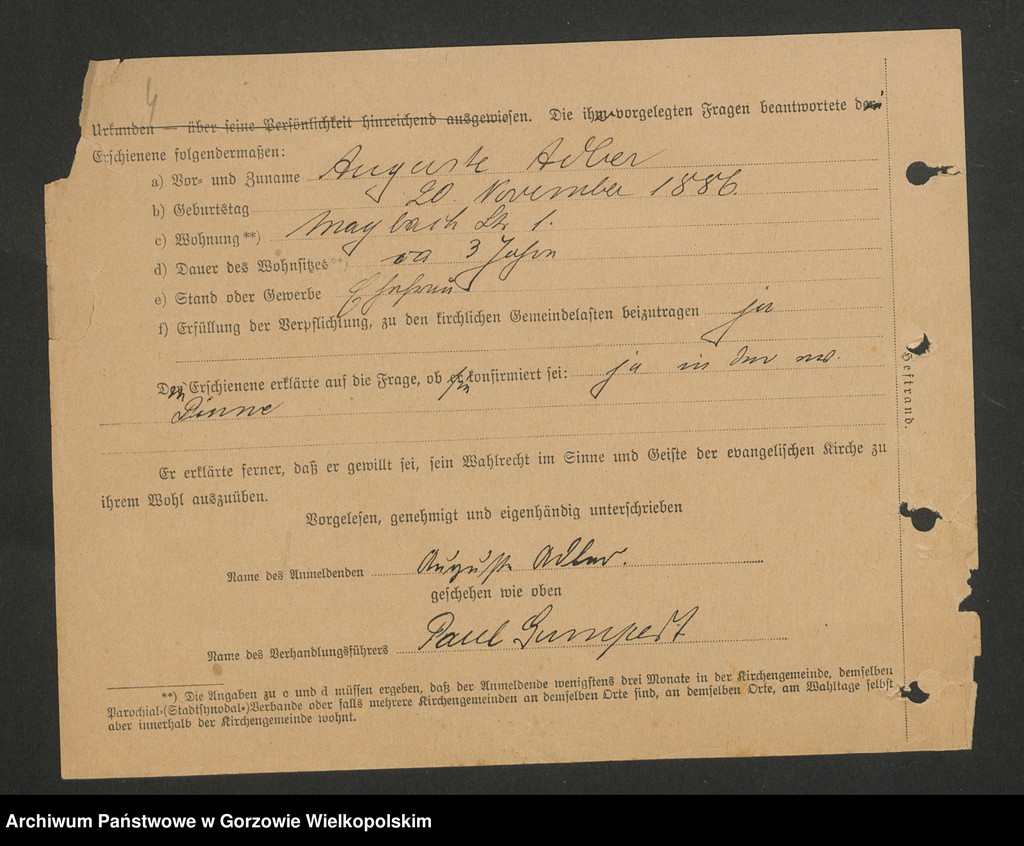 4
Urkunden — über seine Persönlichkeit hinreichend ausgewiesen. Die ihr vorgelegten Fragen beantwortete
Erschienene folgendermaßen:
a) Vor- und Zuname Auguste Adler
b) Geburtstag 20. November 1886.
c) Wohnung **) Maybach Str 1.
d) Dauer des Wohnsitzes **) ca 3 Jahren
e) Stand oder Gewerbe Ehefrau
f) Erfüllung der Verpflichtung, zu den kirchlichen Gemeindelasten beizutragen ja
Die Erschienene erklärte auf die Frage, ob sie konfirmiert sei: ja in der
Er erklärte ferner, daß er gewillt sei, sein Wahlrecht im Sinne und Geiste der evangelischen Kirche zu
ihrem Wohl auszuüben.
Vorgelesen, genehmigt und eigenhändig unterschrieben
Name des Anmeldenden Auguste Adler.
geschehen wie oben
Name des Verhandlungsführers Paul Gumpert
**) Die Angaben zu c und d müssen ergeben, daß der Anmeldende wenigstens drei Monate in der Kirchengemeinde, demselben
Parochial-(Stadtsynodal-)Verbande oder falls mehrere Kirchengemeinden an demselben Orte sind, an demselben Orte, am Wahltage selbst
aber innerhalb der Kirchengemeinde wohnt.
Heftrand.
Archiwum Państwowe w Gorzowie Wielkopolskim